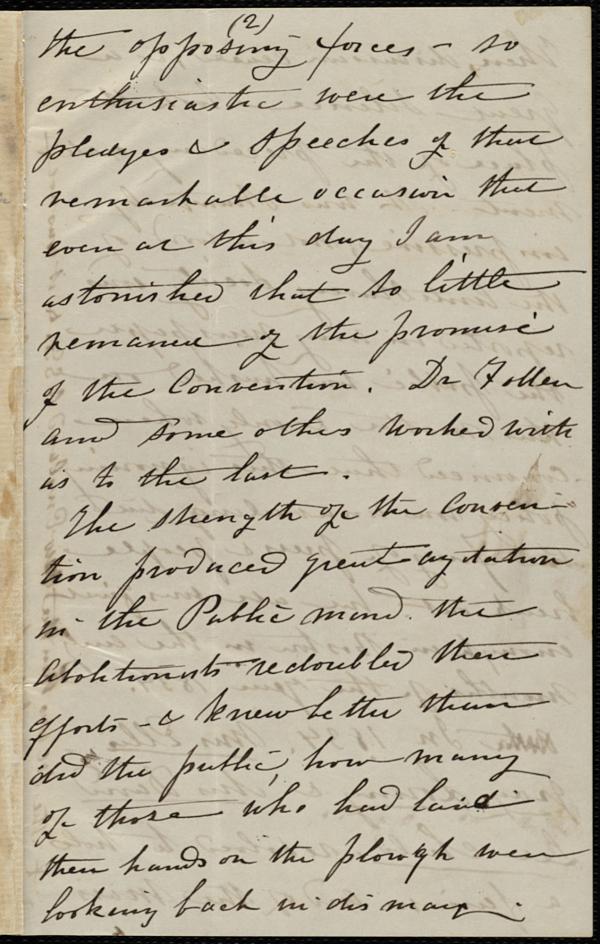 (2)
the opposing forces - so
enthusiastic were the
pledges & speeches of that
remarkable occasion that
even at this day I am
astonished that so little
remained of the promise
of the Convention. Dr Follen
and some others worked with
us to the last.
The strength of the Conven-
tion produced great agitation
in the Public mind. the
Abolitionists redoubled their
efforts - & knew better than
did the public, how many
of those who had laid
their hands on the plough were
looking back in dismay.